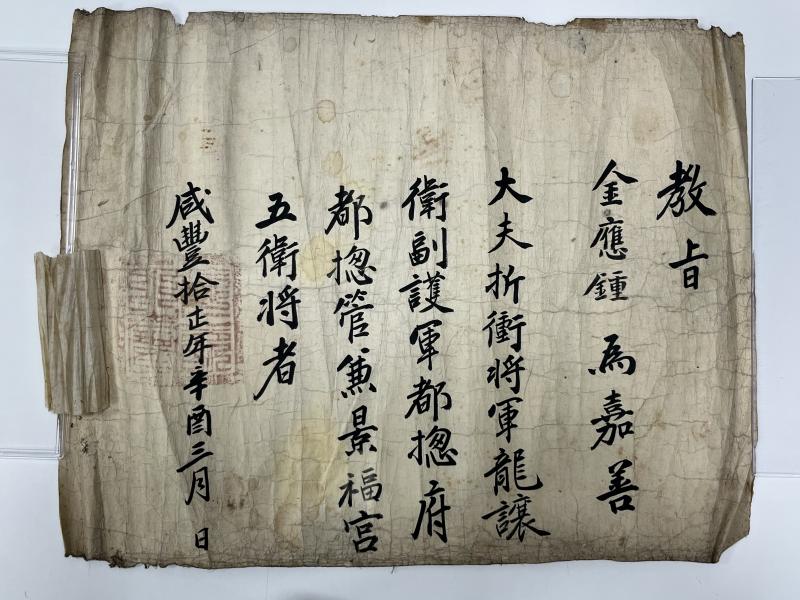 教旨
金應鍾 為嘉善
大夫折衝将軍龍讓
衛副護軍都摠府
都摠管兼景福宮
五衛将者
咸豐拾壱年辛酉三月 日